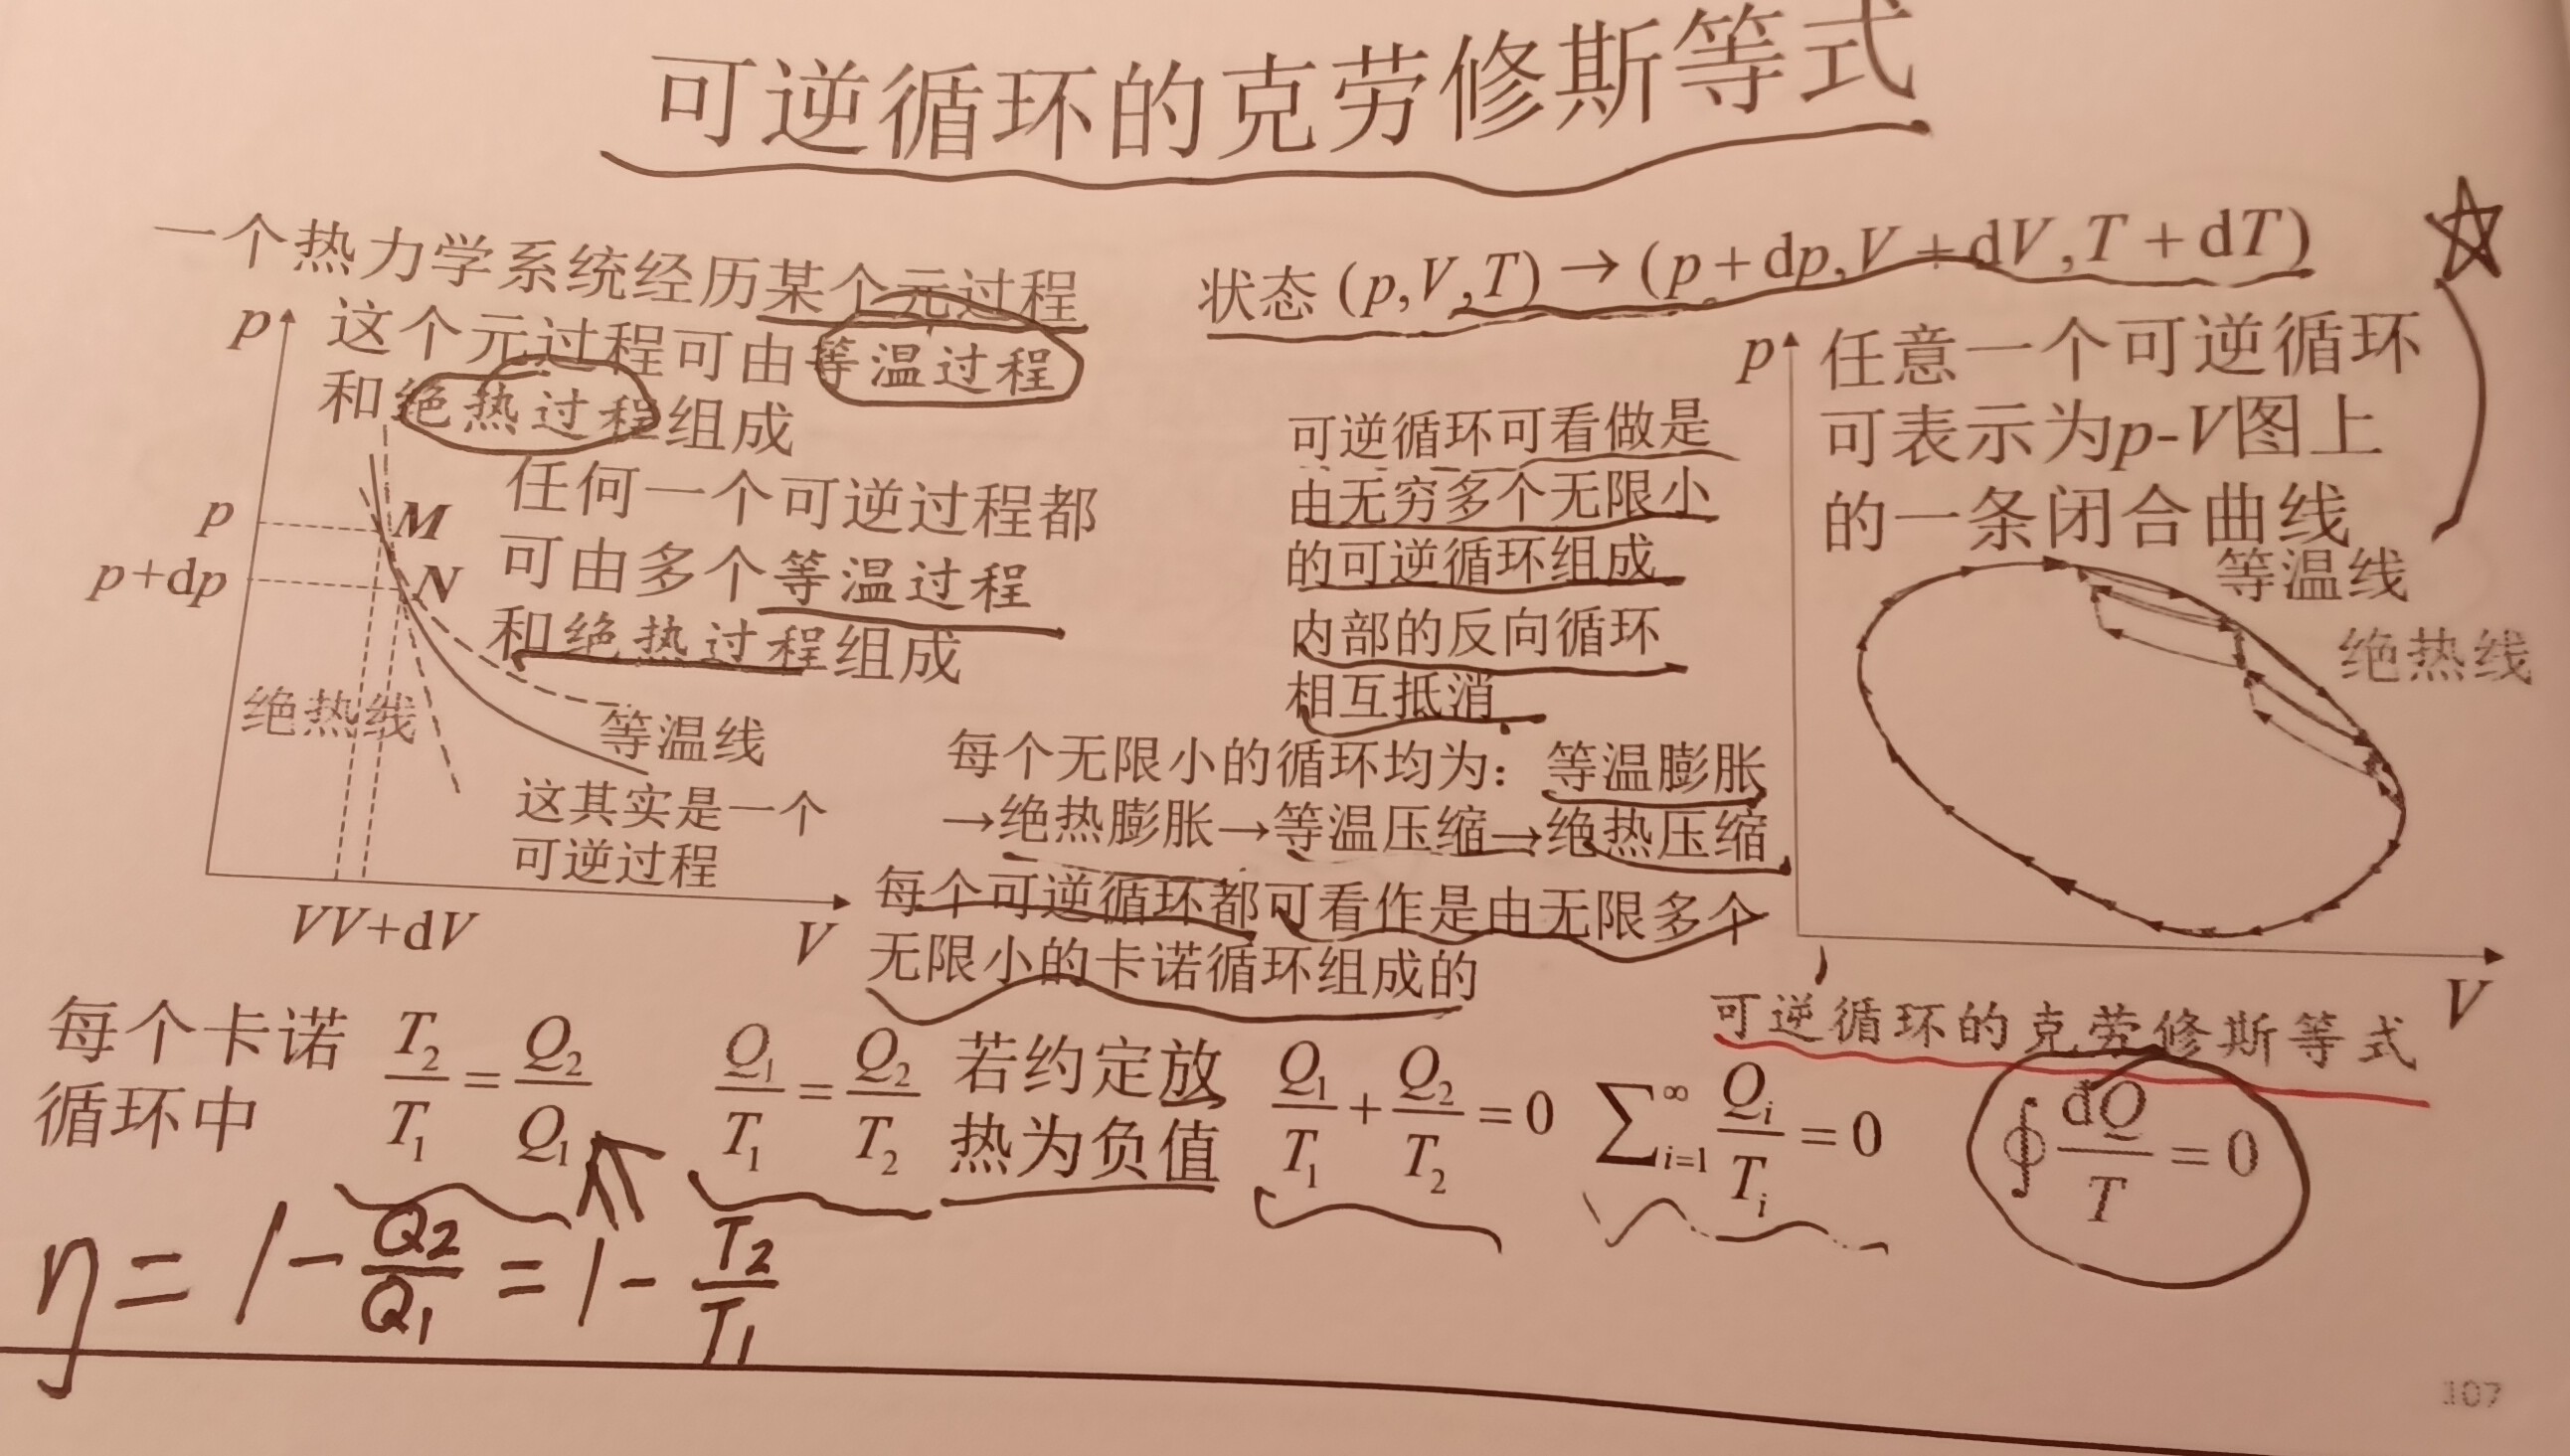 可逆循环的克劳修斯等式
一个热力学系统经历某个元过程
状态 (p,V,T) → (p+dp,V+dV,T+dT)
p
这个元过程可由等温过程
和绝热过程组成
任何一个可逆过程都
可由多个等温过程
和绝热过程组成
p
p+dp
M
N
绝热线
等温线
这其实是一个
可逆过程
V V+dV
V
可逆循环可看做是
由无穷多个无限小
的可逆循环组成
内部的反向循环
相互抵消
p
任意一个可逆循环
可表示为p-V图上
的一条闭合曲线
等温线
绝热线
V
每个无限小的循环均为：等温膨胀
→绝热膨胀→等温压缩→绝热压缩
每个可逆循环都可看作是由无限多个
无限小的卡诺循环组成的
每个卡诺
循环中
T₂/T₁ = Q₂/Q₁
Q₁/T₁ = Q₂/T₂
若约定放
热为负值
Q₁/T₁ + Q₂/T₂ = 0
∑ᵢ₌₁^∞ Qᵢ/Tᵢ = 0
可逆循环的克劳修斯等式
∮ đQ/T = 0
η = 1 - Q₂/Q₁ = 1 - T₂/T₁
107